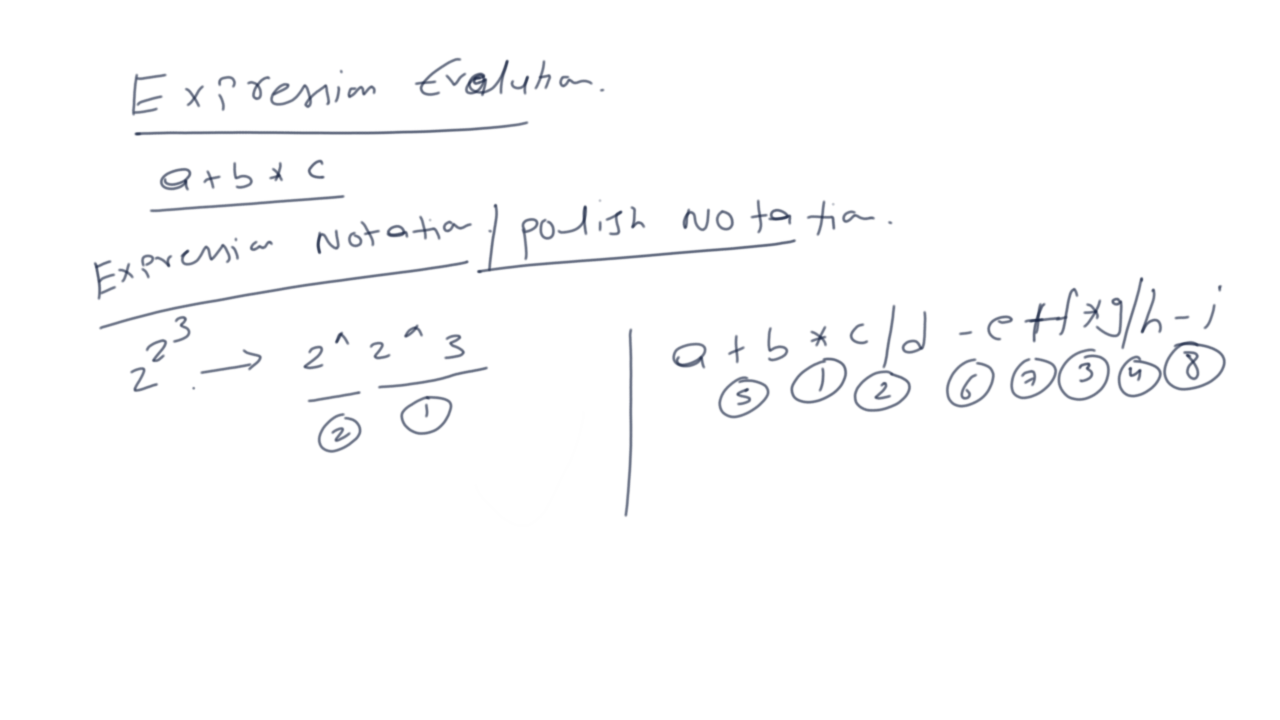 Expression Evaluation.
a + b * c
Expression Notation / polish Notation.
2^2^3 → 2 ^ 2 ^ 3
② ①
a + b * c / d - e + f * g / h - i
⑤ ① ② ⑥ ⑦ ③ ④ ⑧